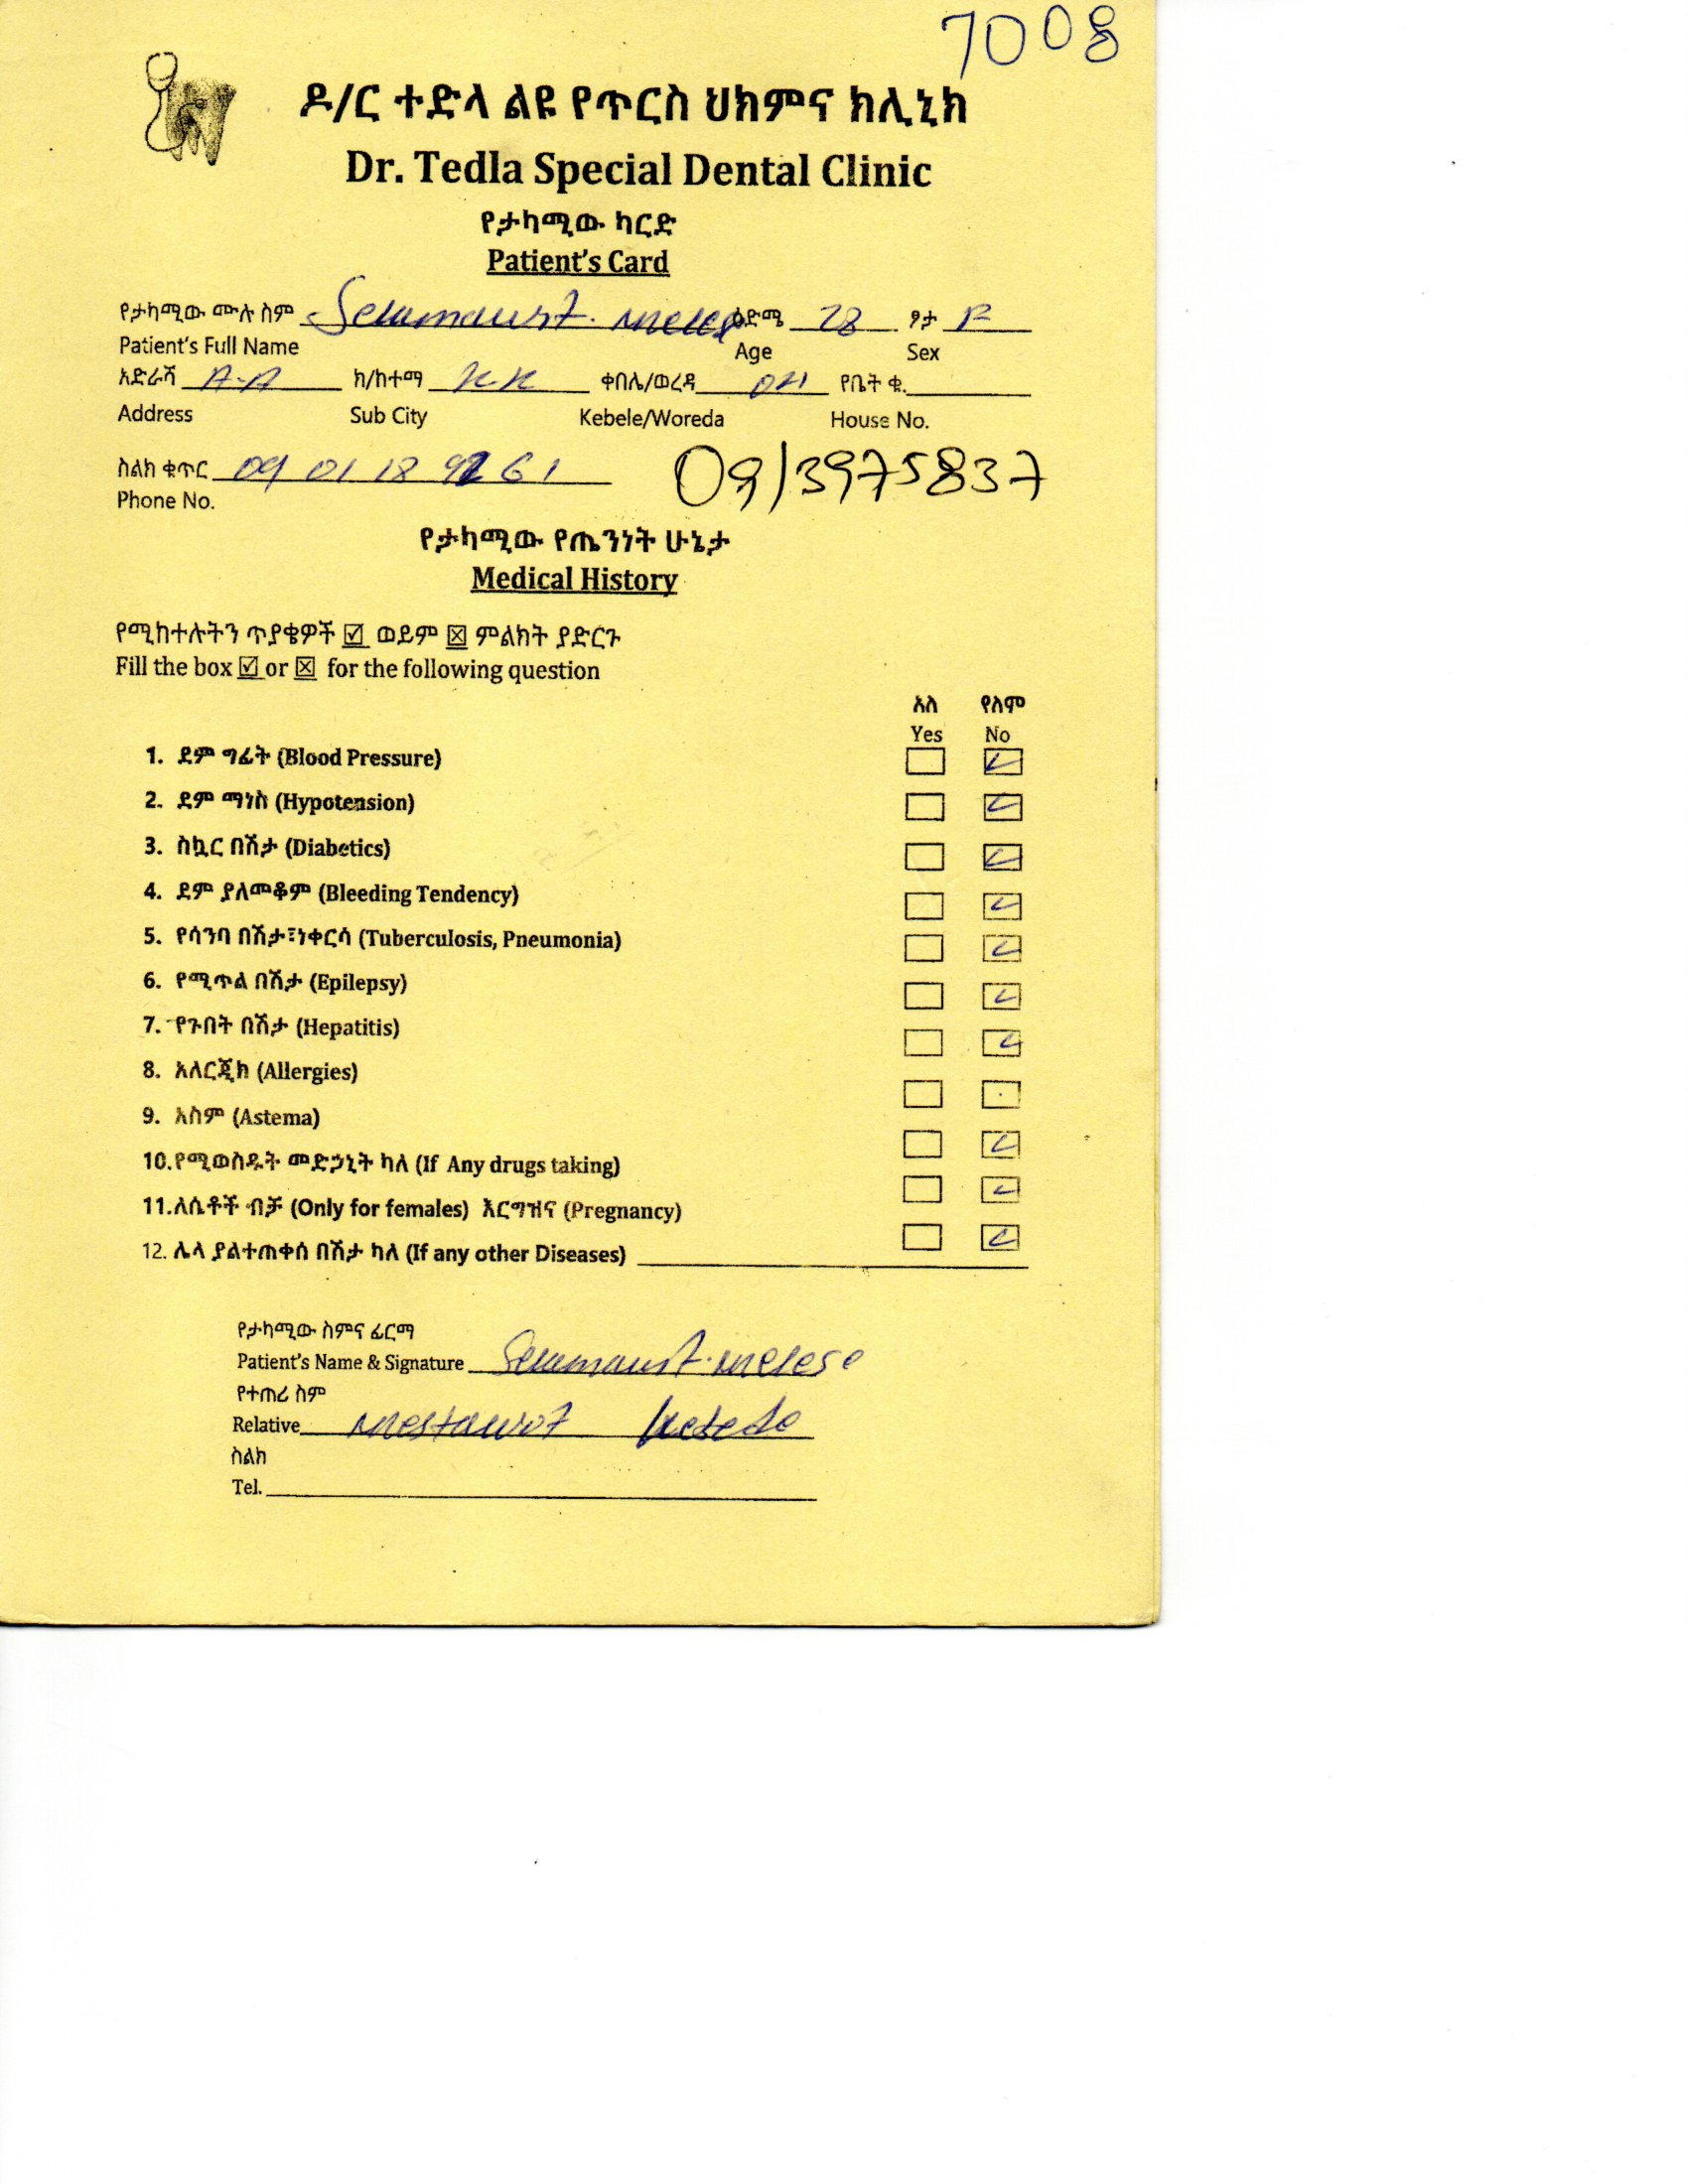 7008
ዶ/ር ተድላ ልዩ የጥርስ ህክምና ክሊኒክ
Dr. Tedla Special Dental Clinic
የታካሚው ካርድ
Patient's Card
የታካሚው ሙሉ ስም ዕድሜ 28 ፆታ F
Patient's Full Name Age Sex
አድራሻ A-A ክ/ከተማ KK ቀበሌ/ወረዳ የቤት ቁ.
Address Sub City Kebele/Woreda House No.
ስልክ ቁጥር 09 01 18 61 0913975837
Phone No.
የታካሚው የጤንነት ሁኔታ
Medical History
የሚከተሉትን ጥያቄዎች ☑ ወይም ☒ ምልክት ያድርጉ
Fill the box ☑ or ☒ for the following question
አለ የለም
Yes No
1. ደም ግፊት (Blood Pressure)
2. ደም ማነስ (Hypotension)
3. ስኳር በሽታ (Diabetics)
4. ደም ያለመቆም (Bleeding Tendency)
5. የሳንባ በሽታ፣ነቀርሳ (Tuberculosis, Pneumonia)
6. የሚጥል በሽታ (Epilepsy)
7. የጉበት በሽታ (Hepatitis)
8. አለርጂክ (Allergies)
9. አስም (Astema)
10.የሚወስዱት መድኃኒት ካለ (If Any drugs taking)
11.ለሴቶች ብቻ (Only for females) እርግዝና (Pregnancy)
12. ሌላ ያልተጠቀሰ በሽታ ካለ (If any other Diseases)
የታካሚው ስምና ፊርማ
Patient's Name & Signature melese
የተጠሪ ስም
Relative mestawot kebede
ስልክ
Tel.